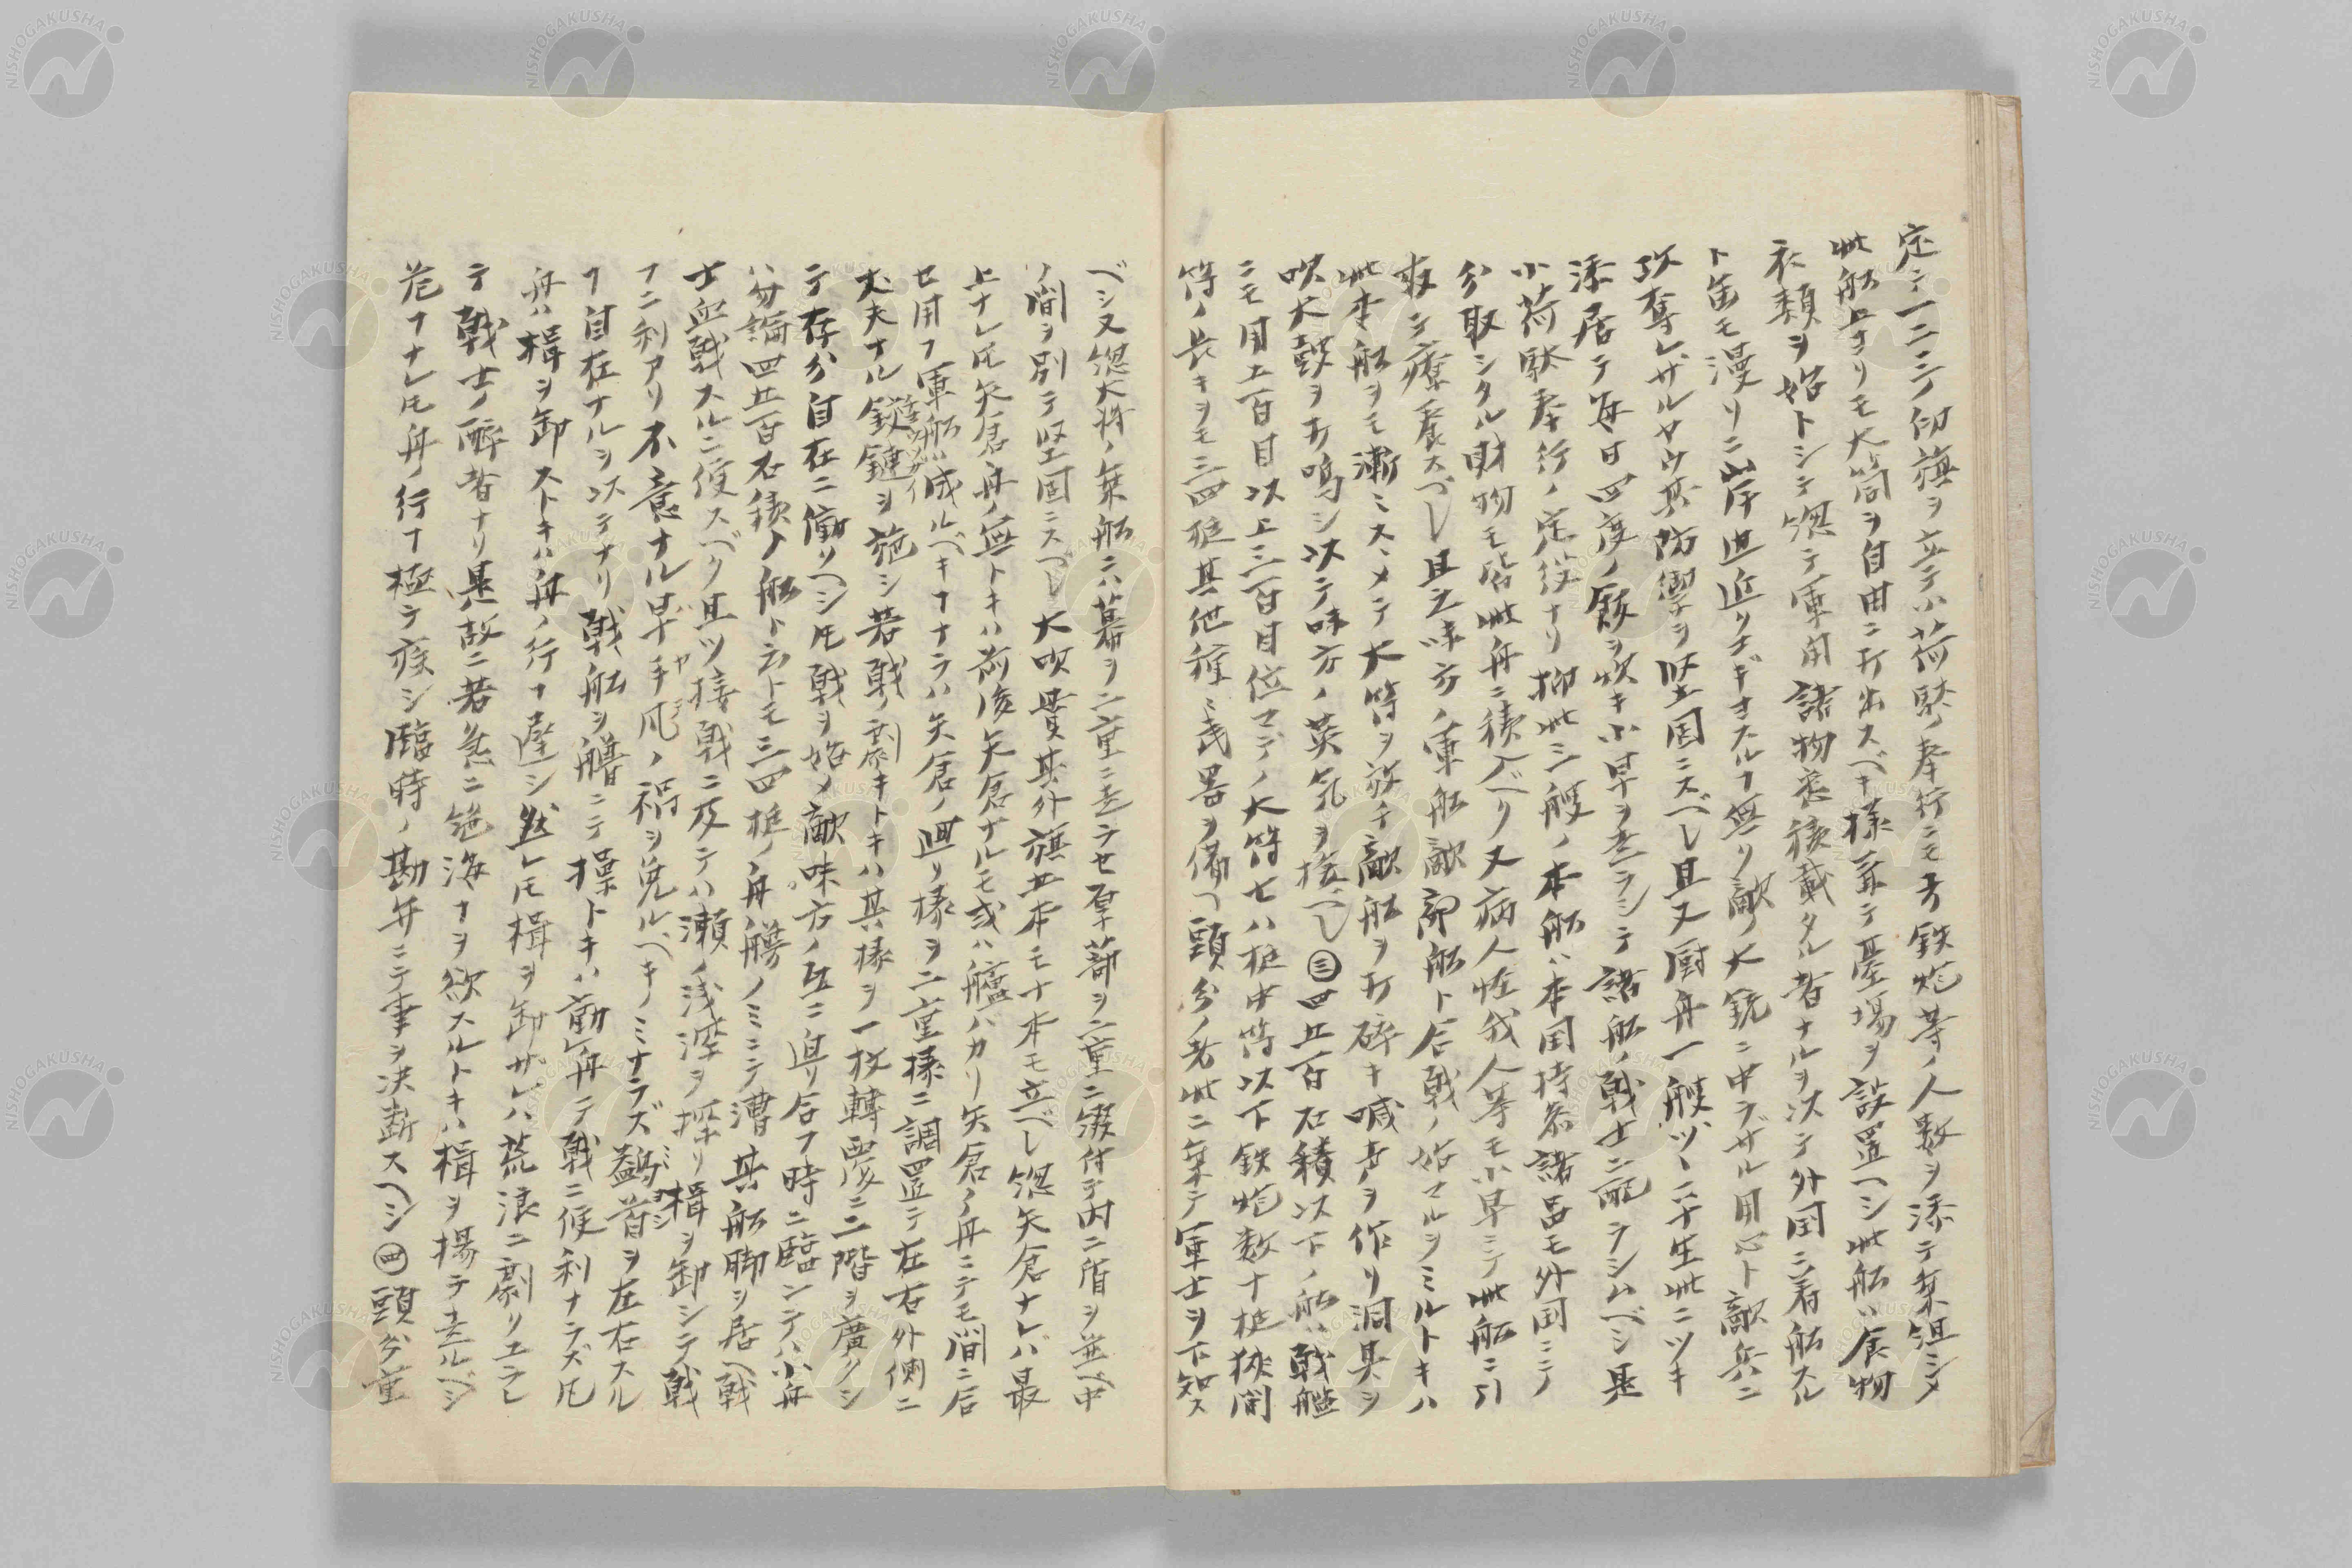 定テ一二三ノ印旗ヲ立テ小荷駄ノ奉行ニモ弓鉄炮等ノ人数ヲ添テ乗組シメ
此船上ヨリモ大筒ヲ自由ニ打出スベキ様兼テ臺場ヲ設置ヘシ此船ハ食物
衣類ヲ始トシテ惣テ軍用諸物悉積載タル者ナルヲ以テ外国ニ着船スル
ト雖モ漫リニ岸辺近リヨギスルフ無リ敵ノ大銃ニ中ラザル用心ト敵兵ニ
攻奪レザルヤウ其防禦ヲ堅固ニスベし且又厨舟一艘ヅヽ二十生此ニツキ
添居テ毎日四度ノ飯ヲ炊キ小早ヲ走ラシテ諸船ノ戦士ニ配ラシムベシ是
小荷駄奉行ノ定役ナリ抑此三艘ノ本船ハ本国持参諸品モ外国ニテノ
分取シタル財物モ皆此舟ニ積入ベリ又病人怪我人等モ小早ニテ此船ニ引
取テ療養スベし且又味方ノ軍船敵郡船ト合戦ノ始マルヲミルトキハ
此本船ヲモ漸ミスヽメテ大筒ヲ放チ敵船ヲ打碎キ喊声ヲ作リ洞具ヲ
吹大鼓ヲ打鳴シ以テ味方ノ英気ヲ援ベし㊂四五百石積以下ノ船ハ戦艦
ニモ用ユ百目以上三百目位マデノ大筒七八挺中筒以下鉄炮数十挺狭間
筒ノ長キヲモ三四挺其他種ミ武器ヲ備ヘ頭分ノ者此ニ乗テ軍士ヲ下知ス
ベシ又惣大将ノ乗船ニハ幕ヲ二重ニ走ラセ厚蔀ヲ二重ニ綴付テ内ニ盾ヲ並ベ中
ノ間ヲ別テ堅固ニスベし大吹貫其外旗五本モ十本モ立ベし惣矢倉ナレハ最
上ナレ𪜈矢倉舟ノ無トキハ前後矢倉ナルモ或ハ艫ハカリ矢倉ノ舟ニテモ間ニ合
セ用フ軍船ハ成ルベキフナラハ矢倉ノ廻リ様ヲ二重様ニ調置テ在右外側ニ
丈夫ナル鉄鏈ヲ施シ若戦ノ劇キトキハ其様ヲ一枚轉覆ニ二階ヲ廣クシ
テ存分自在ニ働リヘシ𪜈戦ヲ始メ敵味方ノ互ニ迫リ合フ時ニ臨ンテハ小舟
ハ勿論四五百石積ノ船ト云トモ三四挺ノ舟艪ノミニテ漕其船脚ヲ居ヘ戦
士血戦スルニ便スベク且ツ接戦ニ及テハ瀬ノ浅深ヲ探リ楫ヲ卸シテ戦
フニ利アリ不意ナル早手風ノ禍ヲ免ルベキノミナラズ鷁首ヲ左右スル
フ自在ナルヲ以テナリ戦船ヲ艪ニテ操トキハ動舟テ戦ニ便利ナラズ𪜈
舟ハ楫ヲ卸ストキハ舟ノ行フ遅シ然レ𪜈楫ヲ卸ザレハ荒浪ニ劇リユラレ
テ戦士ノ酔者ナリ是故ニ若急ニ絶海ナヲ欲スルトキハ楫ヲ揚テ走ルベシ
危フナレ𪜈舟ノ行フ極テ疾シ臨時ノ勘弁ニテ事ヲ決断スヘシ㊃頭分重